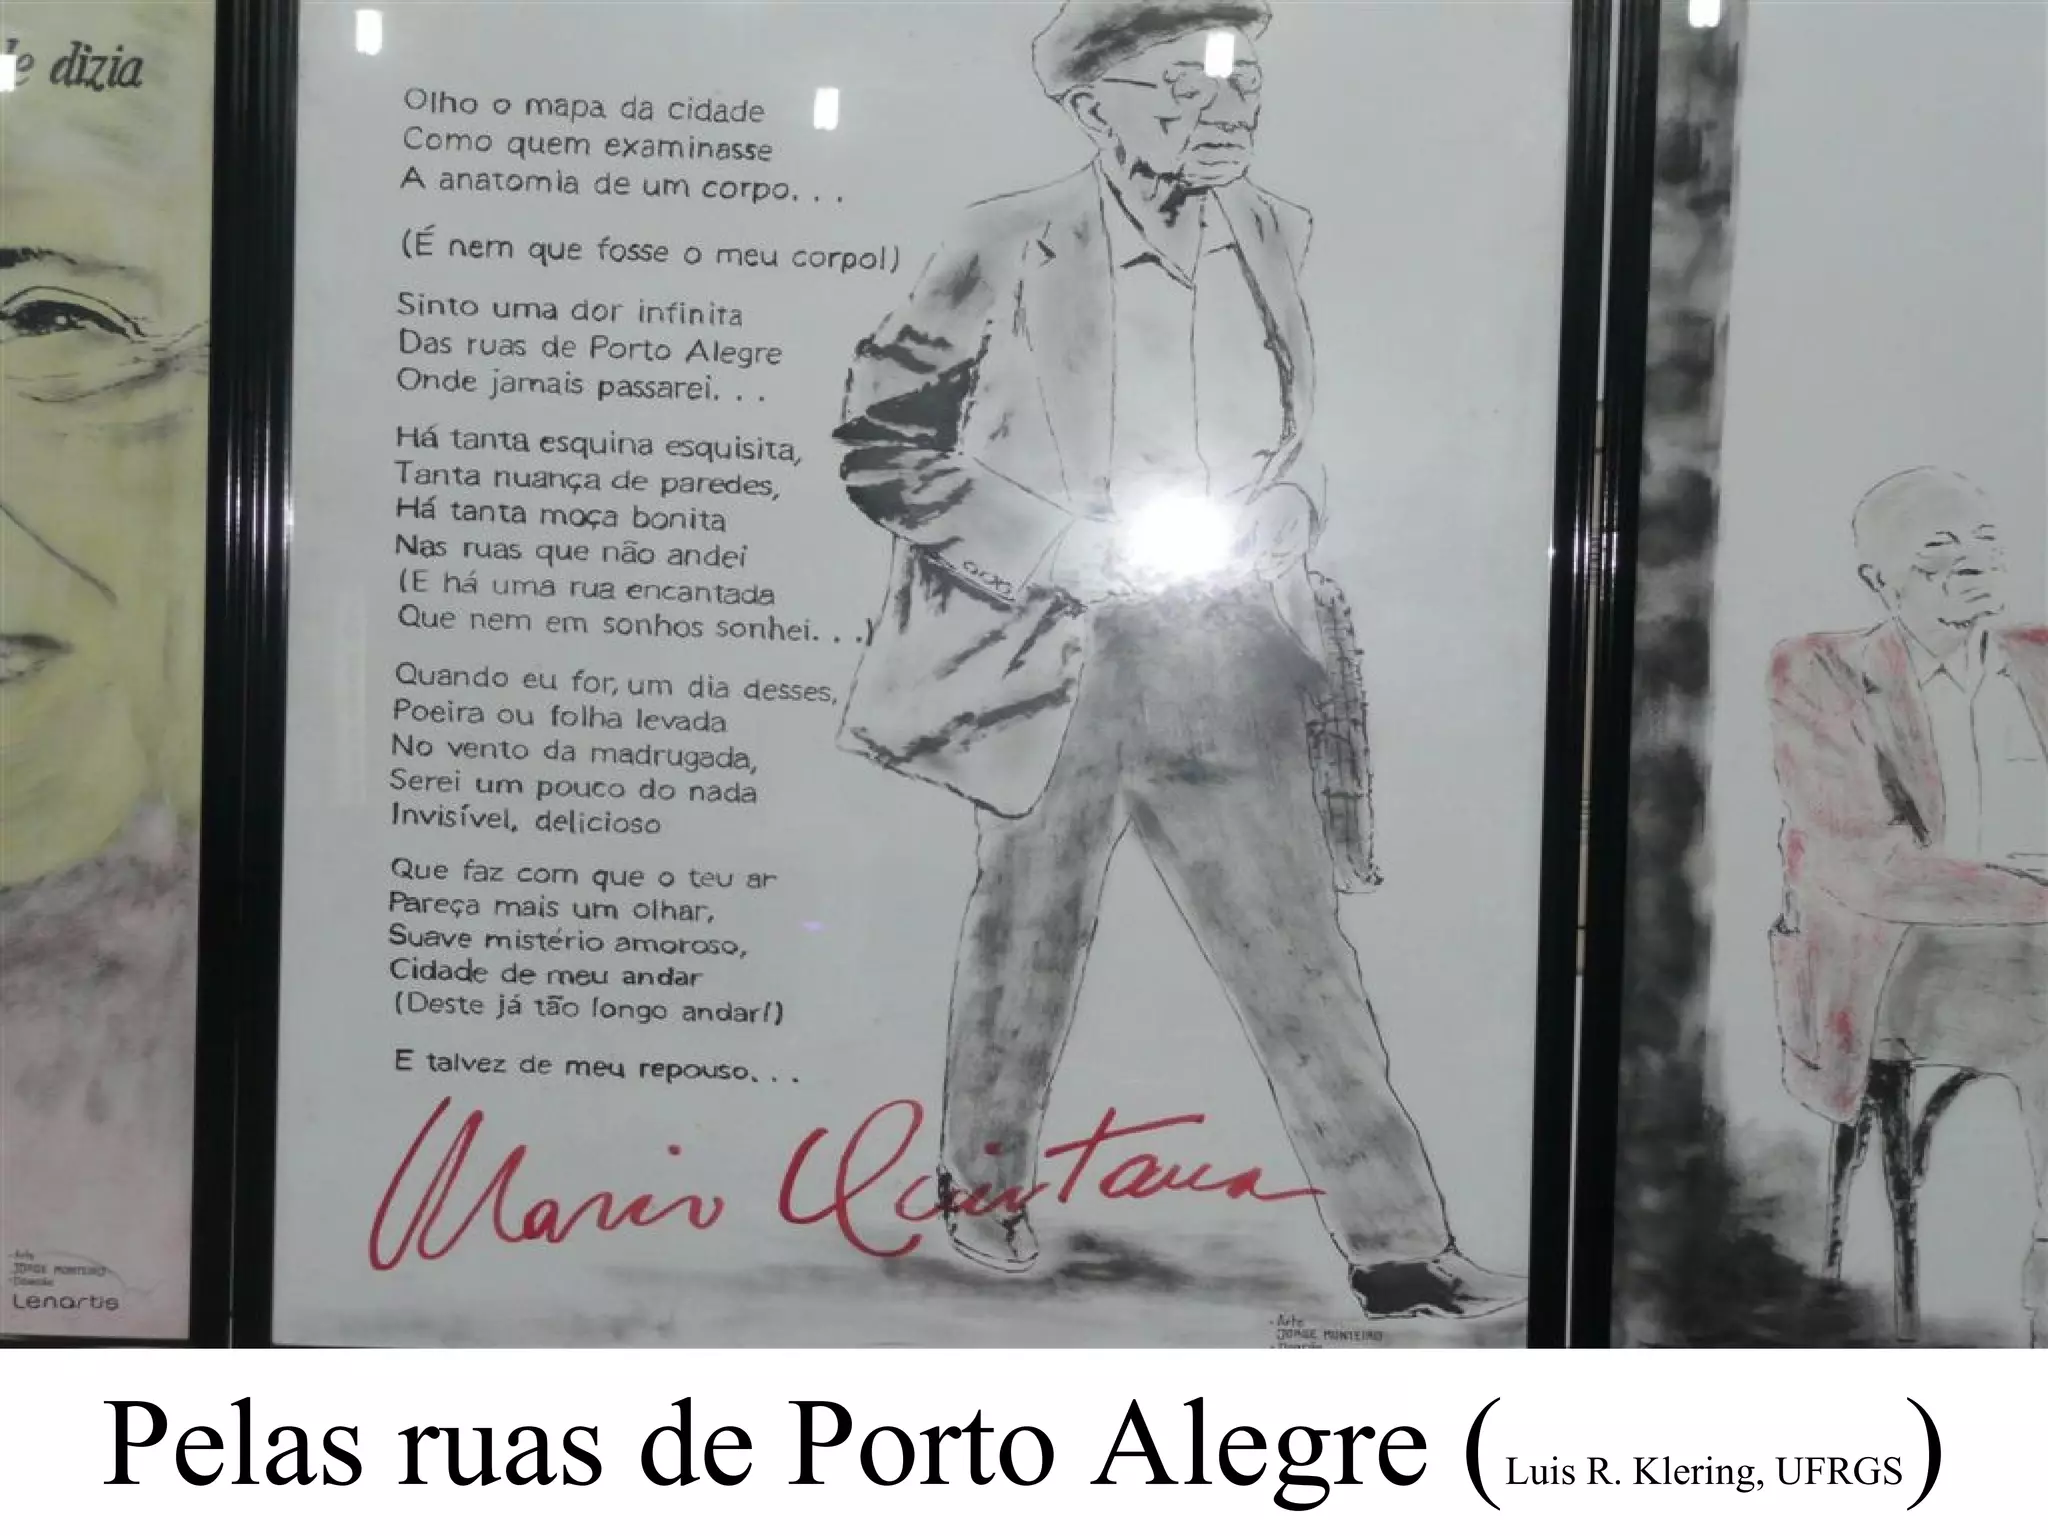 e dizia
Olho o mapa da cidade
Como quem examinasse
A anatomia de um corpo. . .
(É nem que fosse o meu corpo!)
Sinto uma dor infinita
Das ruas de Porto Alegre
Onde jamais passarei. . .
Há tanta esquina esquisita,
Tanta nuança de paredes,
Há tanta moça bonita
Nas ruas que não andei
(E há uma rua encantada
Que nem em sonhos sonhei. . .)
Quando eu for, um dia desses,
Poeira ou folha levada
No vento da madrugada,
Serei um pouco do nada
Invisível, delicioso
Que faz com que o teu ar
Pareça mais um olhar,
Suave mistério amoroso,
Cidade de meu andar
(Deste já tão longo andar!)
E talvez de meu repouso. . .
Mario Quintana
- Arte
JORGE MONTEIRO
- Doação
Lenartis
- Arte
JORGE MONTEIRO
- Doação
Pelas ruas de Porto Alegre (Luis R. Klering, UFRGS)